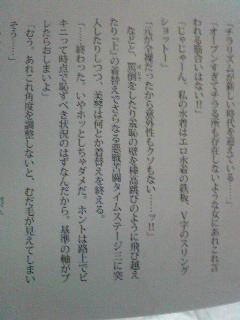 「チラリズムが新しい時代を迎えている
「オープンすぎてチラる所が存在しないような女にあれこれ言
われる筋合いはない!!
「じゃじゃーん。私の水着はエロ水着の鉄板、V字のスリング
ショットー」
「元が全裸だったから意外性もクソもない……ッ!!
などと、罵倒をしたり羞恥の壁を棒高跳びのように飛び越え
たり(上)の着替えでさらなる悪戦苦闘タイムステージ三に突
入したりしつつ、美琴は何とか着替えを終える。
「……終わった。いやホッとしちゃダメだ。ホントは路上でビ
キニって時点で恥ずべき状況のはずなんだから。基準の軸がブ
レしたらおしまいよ」
「むう。あれこれ角度を調整しないと、むだ毛が見えてしまい
そう……」